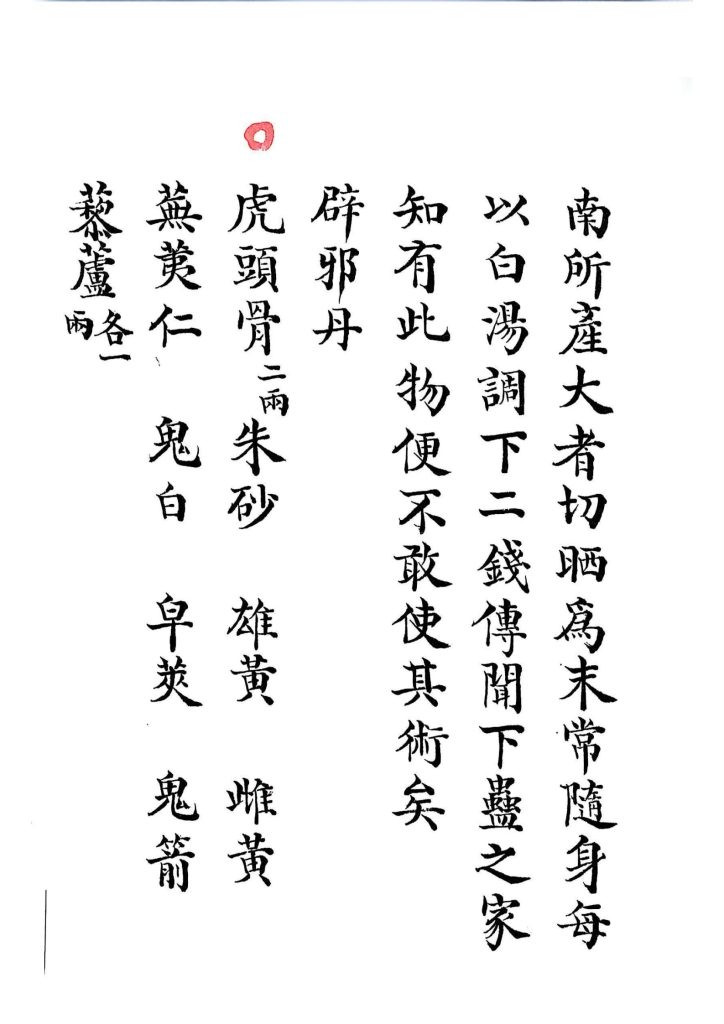 南所產大者切晒爲末常隨身每
以白湯調下二錢傳聞下蠱之家
知有此物便不敢使其術矣
辟邪丹
虎頭骨二兩朱砂 雄黃 雌黃
蕪荑仁 鬼臼 皁莢 鬼箭
藜蘆各一兩